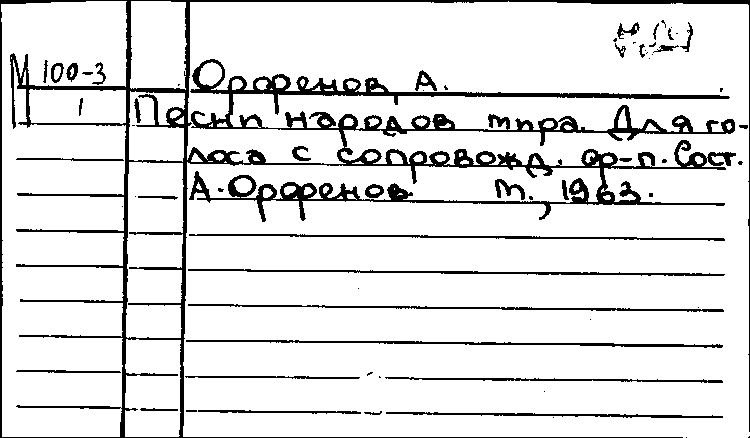 М 100-3
1
Орфенов, А.
Песни народов мира. Для го-
лоса с сопровожд. ф-п. Сост.
А. Орфенов. М., 1963.